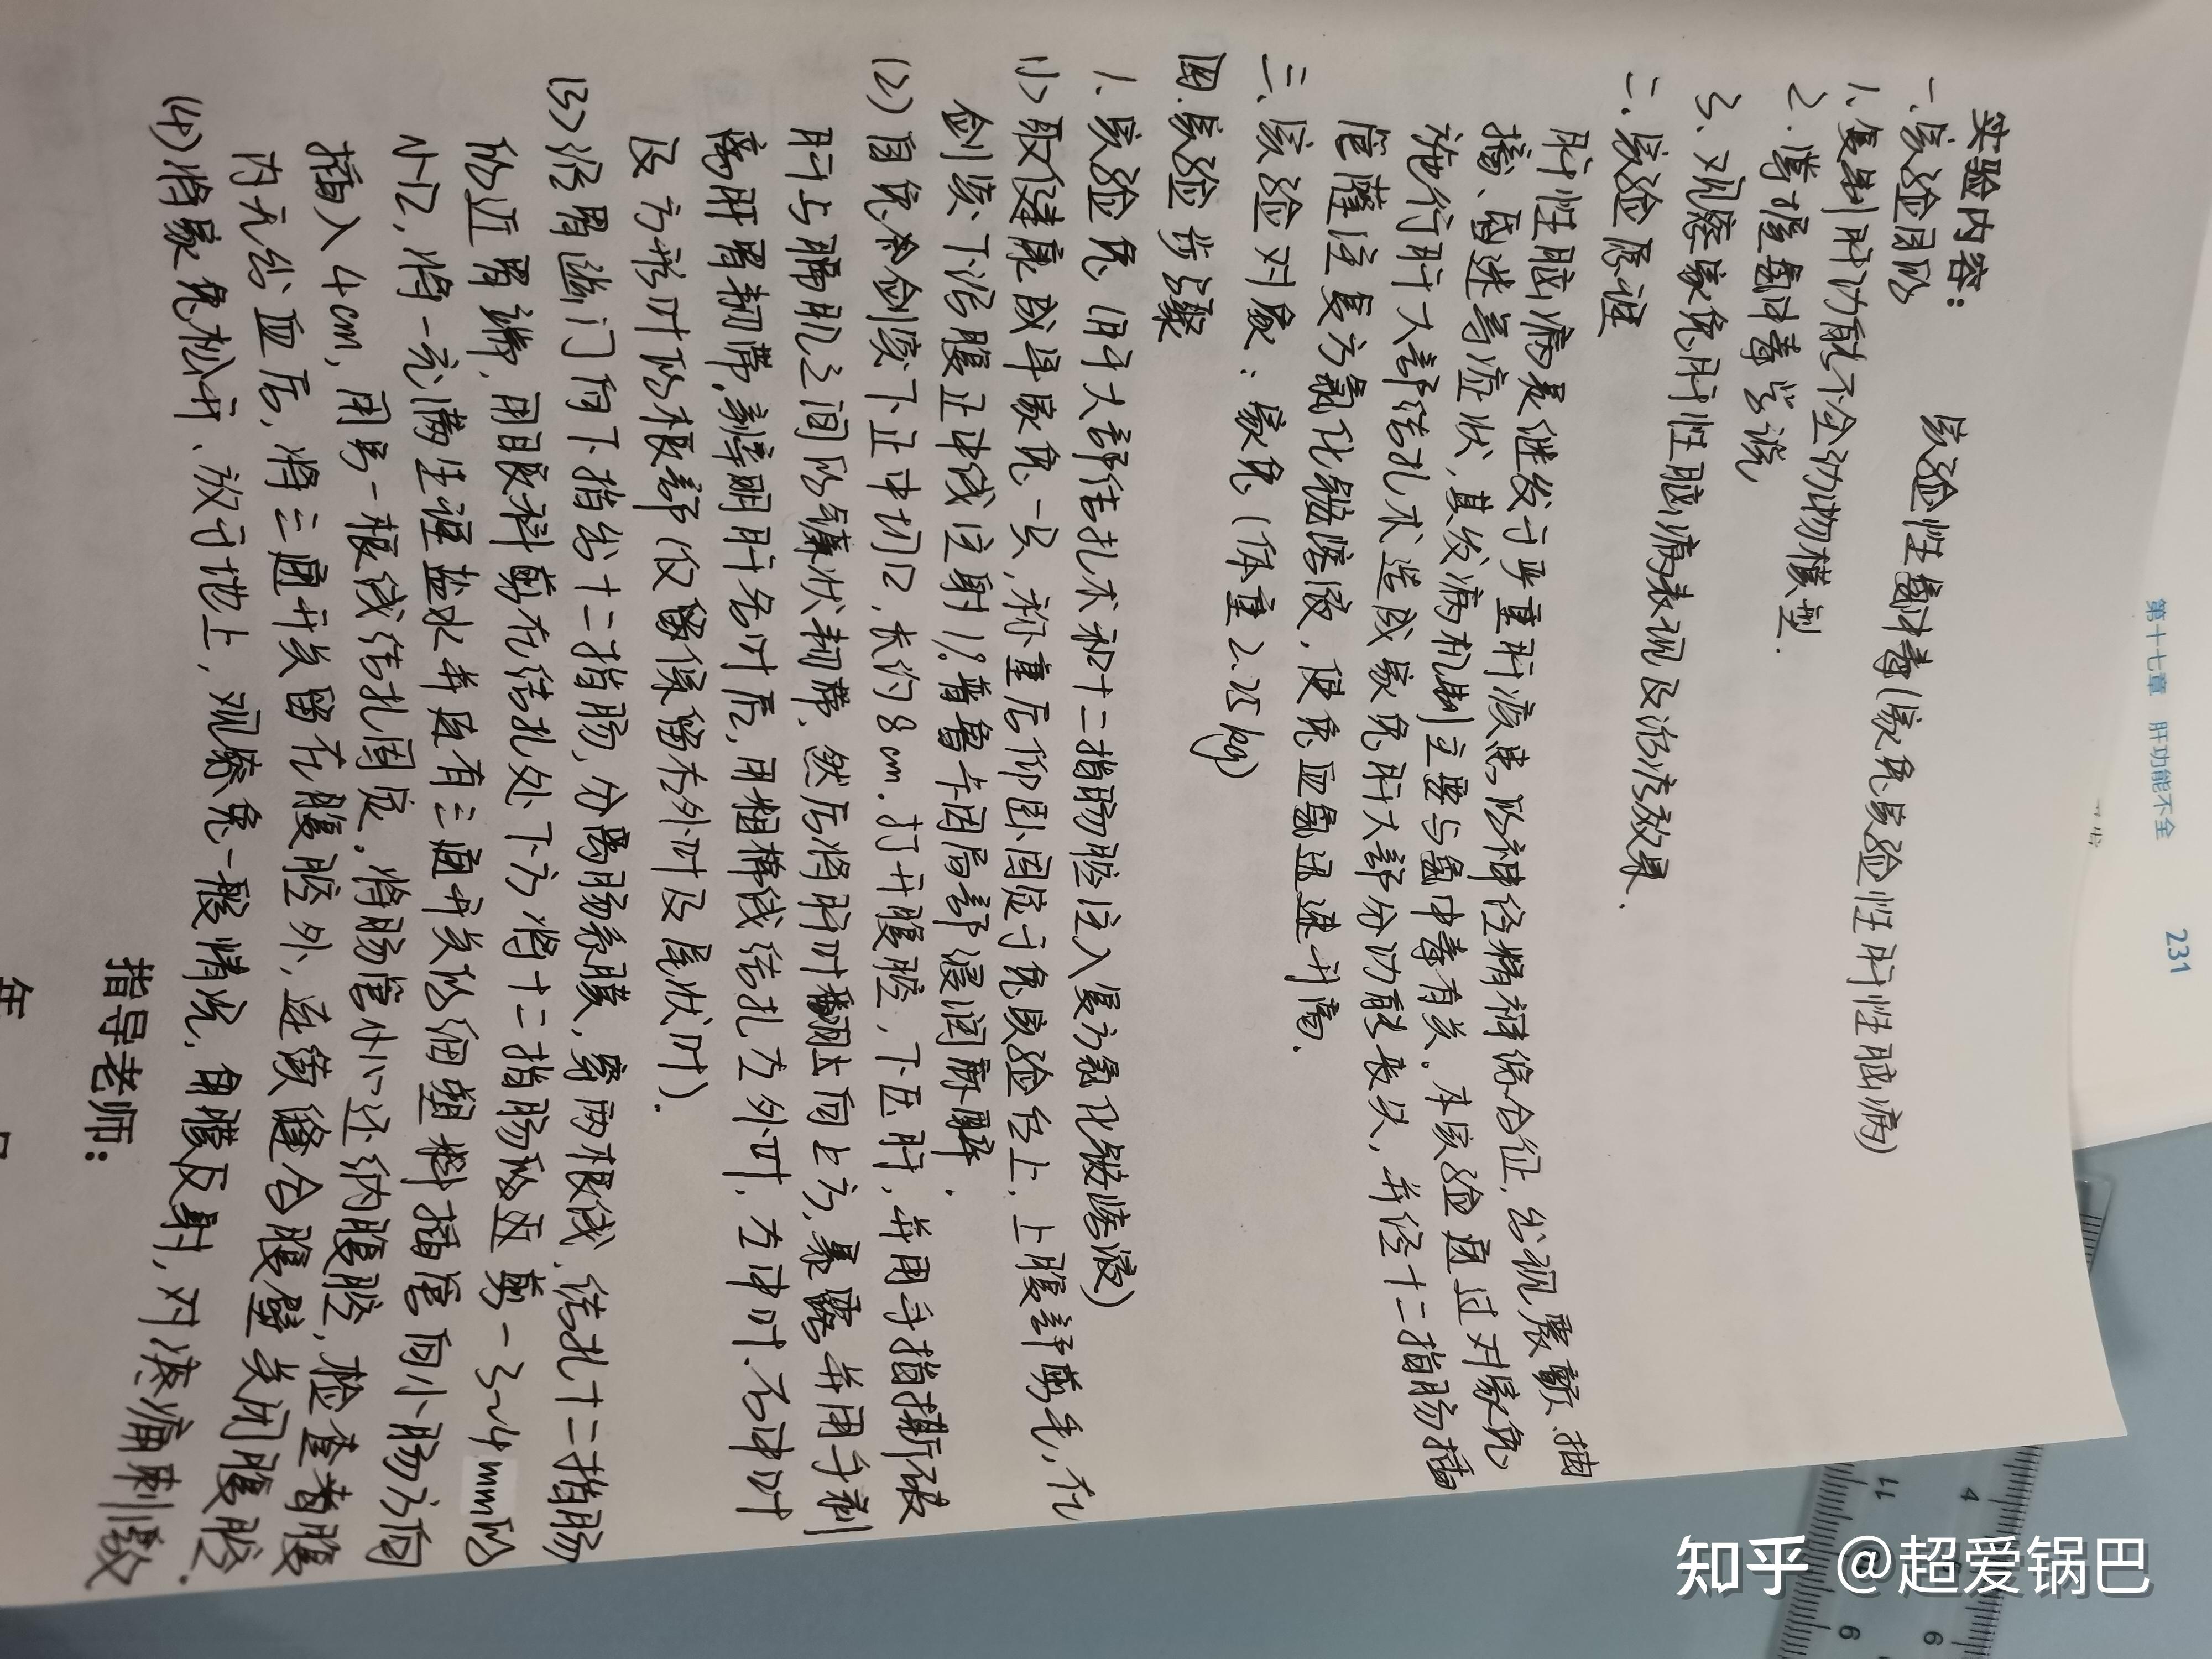 第十七章 肝功能不全 231
实验内容：
实验性氨中毒(家兔实验性肝性脑病)
一.实验目的
1.复制肝功能不全动物模型.
2.掌握氨中毒学说
3.观察家兔肝性脑病表现及治疗效果.
二.实验原理
肝性脑病是继发于严重肝疾患的神经精神综合征,出现震颤、抽
搐、昏迷等症状,其发病机制主要与氨中毒有关。本实验通过对家兔
施行肝大部结扎术造成家兔肝大部分功能丧失,并经十二指肠插
管灌注复方氯化铵溶液,使兔血氨迅速升高.
三.实验对象:家兔(体重2.25kg)
四.实验步骤
1.实验兔(肝大部结扎术和十二指肠腔注入复方氯化铵溶液)
(1)取健康成年家兔一只,称重后仰卧固定于兔实验台上,上腹部剪毛,在
剑突下沿腹正中线注射1%普鲁卡因局部浸润麻醉.
(2)自兔剑突下正中切口,长约8cm.打开腹腔,下压肝,并用手指撕破
肝与膈肌之间的镰状韧带,然后将肝叶翻出向上方,暴露并用手剥
离肝胃韧带,辨明肝各叶后,用粗棉线结扎左外叶,左中叶、右中叶
及方形叶的根部(仅留保留右外叶及尾状叶).
(3)沿胃幽门向下指出十二指肠,分离肠系膜,穿两根线,结扎十二指肠
的近胃端,用眼科剪在结扎处下方将十二指肠剪一3~4mm的
小口,将一充满生理盐水并连有三通开关的细塑料插管向小肠方向
插入4cm,用另一根线结扎固定。将肠管小心还纳腹腔,检查看腹
内无出血后,将三通开关留在腹腔外,连续缝合腹壁关闭腹腔.
(4)将家兔松开、放于地上,观察兔一般情况,角膜反射,对疼痛刺激
指导老师：
年
知乎 @超爱锅巴
11
4
6
6